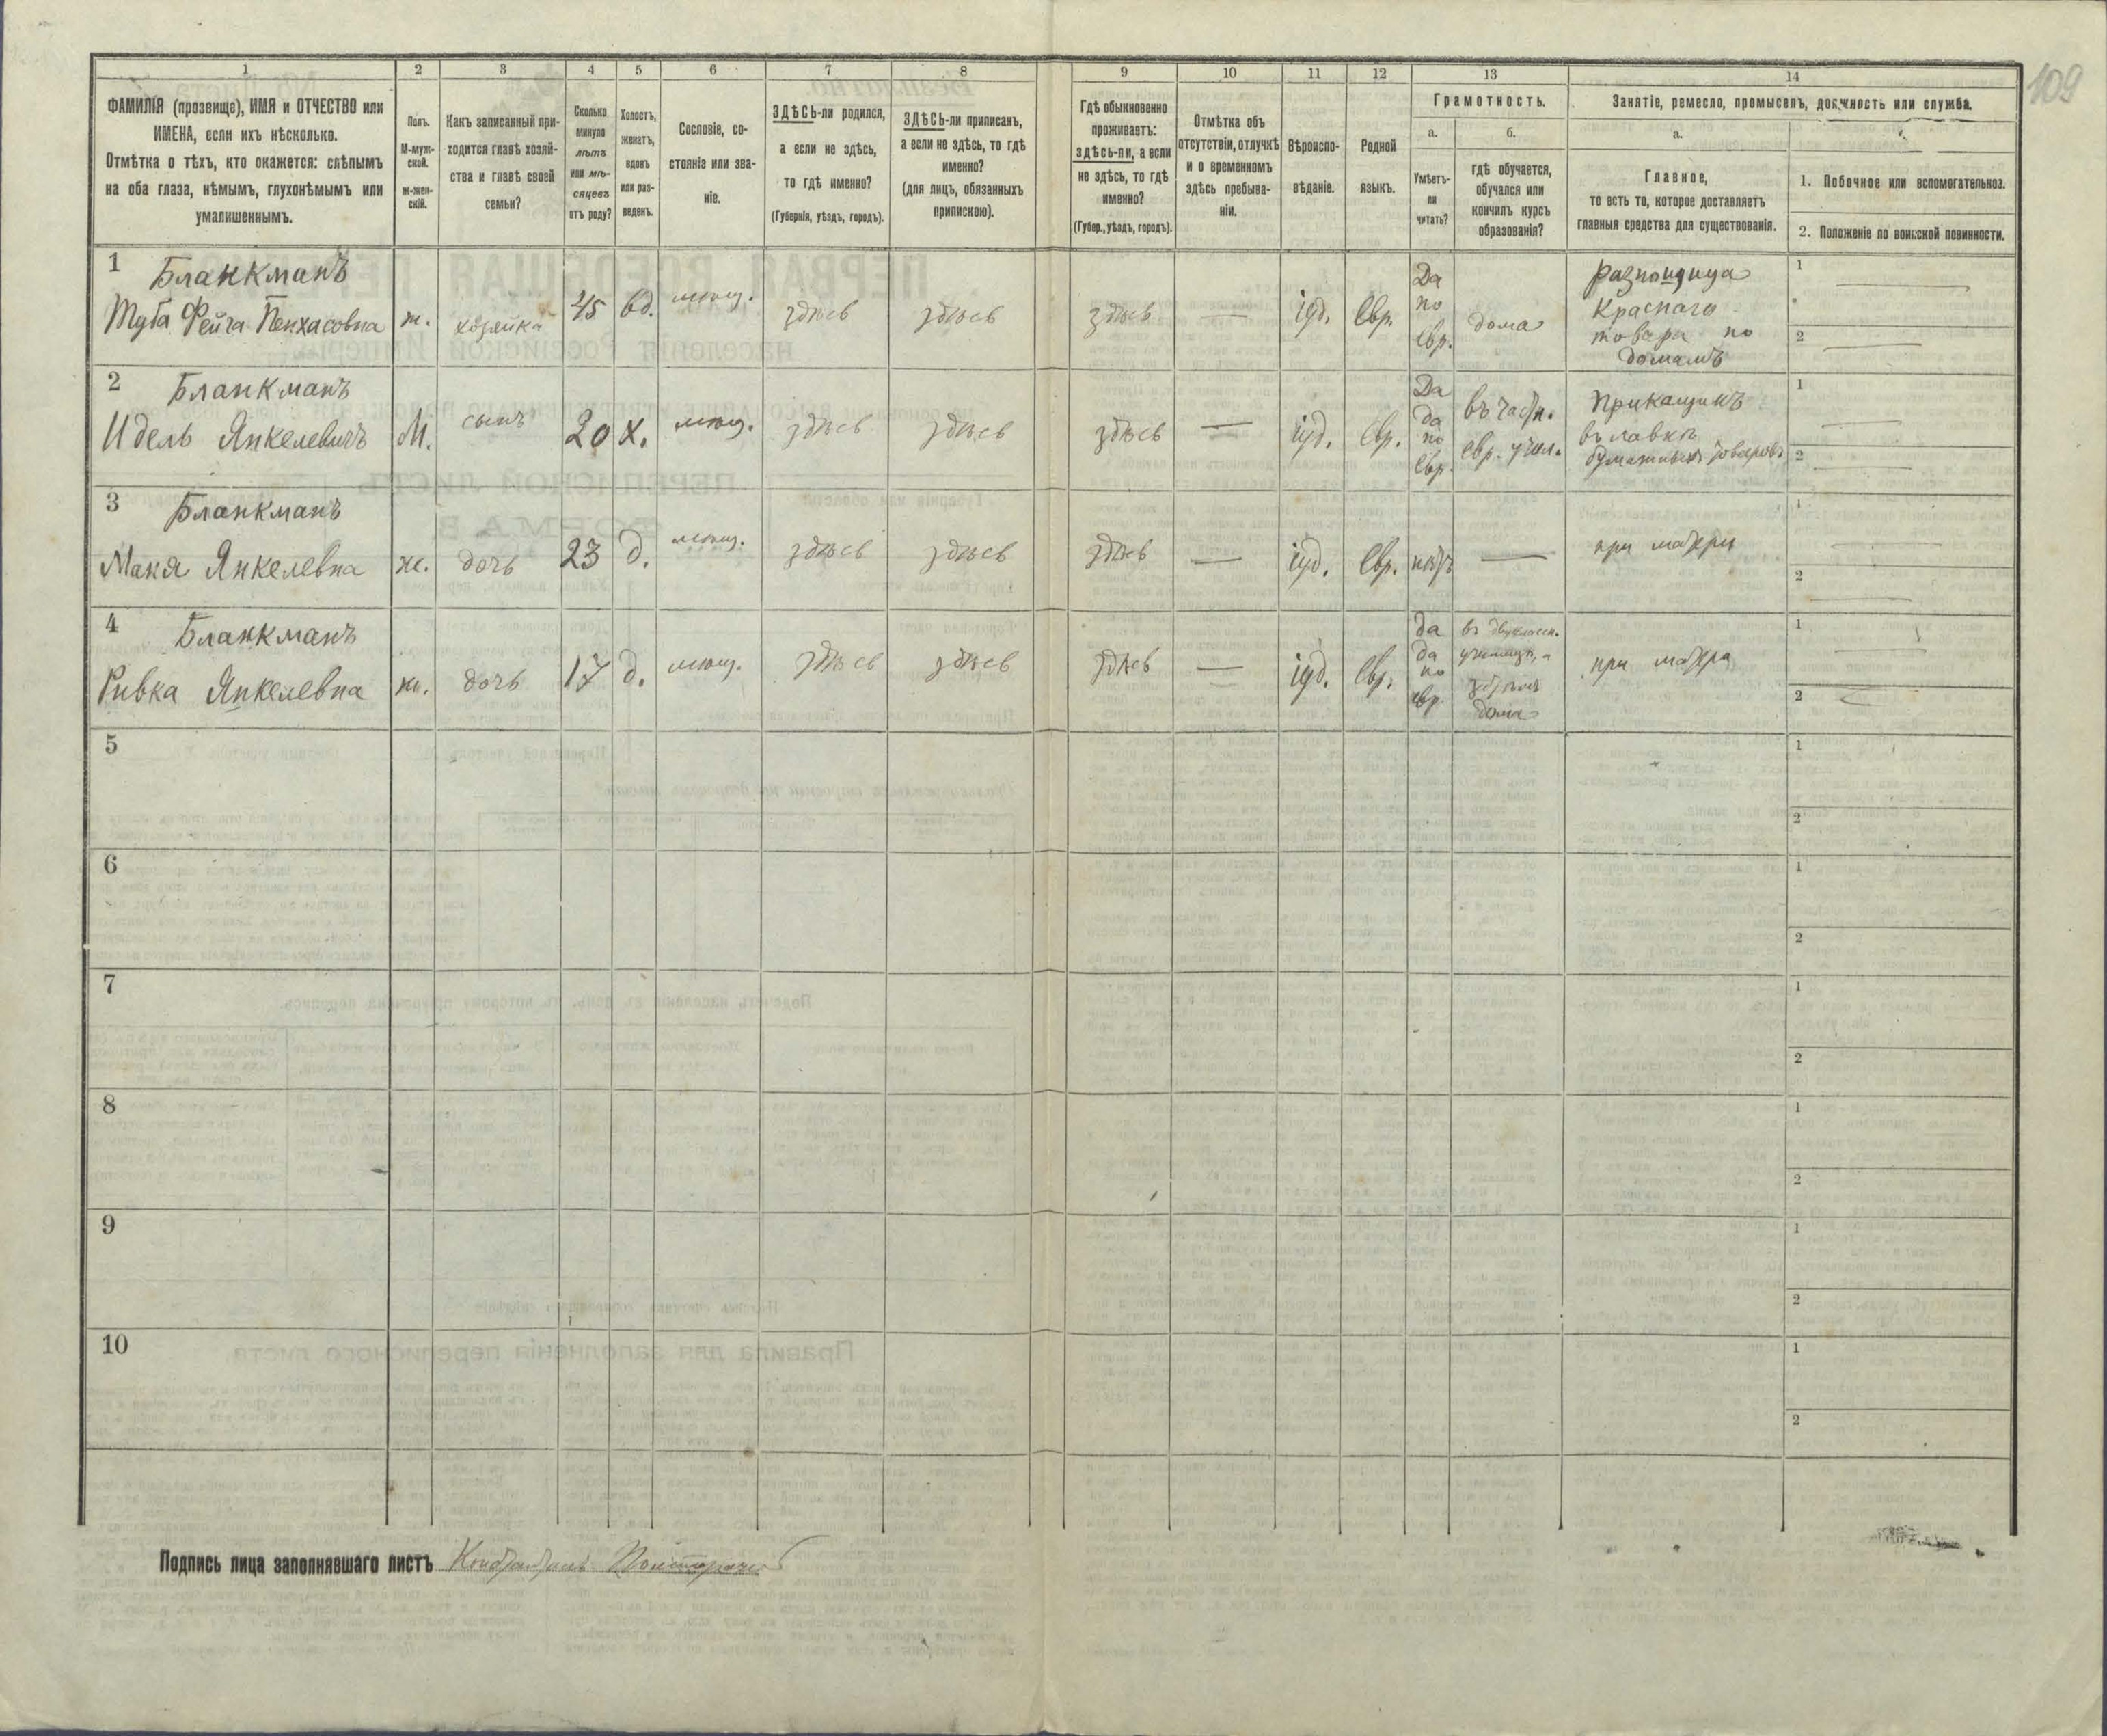 109
1
2
3
4
5
6
7
8
9
10
11
12
13
14
ФАМИЛІЯ (прозвище), ИМЯ и ОТЧЕСТВО или
ИМЕНА, если ихъ нѣсколько.
Отмѣтка о тѣхъ, кто окажется: слѣпымъ
на оба глаза, нѣмымъ, глухонѣмымъ или
умалишеннымъ.
Полъ.
М-муж-
ской.
ж-жен-
скій.
Какъ записанный при-
ходится главѣ хозяй-
ства и главѣ своей
семьи?
Сколько
минуло
лѣтъ
или мѣ-
сяцевъ
отъ роду?
Холостъ,
женатъ,
вдовъ
или раз-
веденъ.
Сословіе, со-
стояніе или зва-
ніе.
ЗДѢСЬ-ли родился,
а если не здѣсь,
то гдѣ именно?
(Губернія, уѣздъ, городъ).
ЗДѢСЬ-ли приписанъ,
а если не здѣсь, то гдѣ
именно?
(для лицъ, обязанныхъ
припискою).
Гдѣ обыкновенно
проживаетъ:
здѣсь-ли, а если
не здѣсь, то гдѣ
именно?
(Губер., уѣздъ, городъ).
Отмѣтка объ
отсутствіи, отлучкѣ
и о временномъ
здѣсь пребыва-
ніи.
Вѣроиспо-
вѣданіе.
Родной
языкъ.
Грамотность.
а.
Умѣетъ-
ли
читать?
б.
гдѣ обучается,
обучался или
кончилъ курсъ
образованія?
Занятіе, ремесло, промыселъ, должность или служба.
а.
Главное,
то есть то, которое доставляетъ
главныя средства для существованія.
1. Побочное или вспомогательное.
2. Положеніе по воинской повинности.
1 Бланкманъ
Туба Фейга Пинхасовна ж. хозяйка 45 вд. мѣщ. здѣсь здѣсь здѣсь — іуд. Евр.
Да
по
евр.
дома
Разнощица
Краснаго
товара по
домамъ
1
2
2 Бланкманъ
Идель Янкелевичъ М. сынъ 20 х. мѣщ. здѣсь здѣсь здѣсь — іуд. Евр.
Да
да
по
Евр.
въ частн.
евр. учил.
Прикащикъ
въ лавкѣ
бумажныхъ товаровъ
1
2
3 Бланкманъ
Маня Янкелевна ж. дочь 23 д. мѣщ. здѣсь здѣсь здѣсь — іуд. Евр. нѣтъ — при матери
1
2
4 Бланкманъ
Ривка Янкелевна ж. дочь 17 д. мѣщ. здѣсь здѣсь здѣсь — іуд. Евр.
да
да
по
евр.
въ двуклассн.
дома
при матери
1
2
5
1
2
6
1
2
7
1
2
8
1
2
9
1
2
10
1
2
Подпись лица заполнявшаго листъ